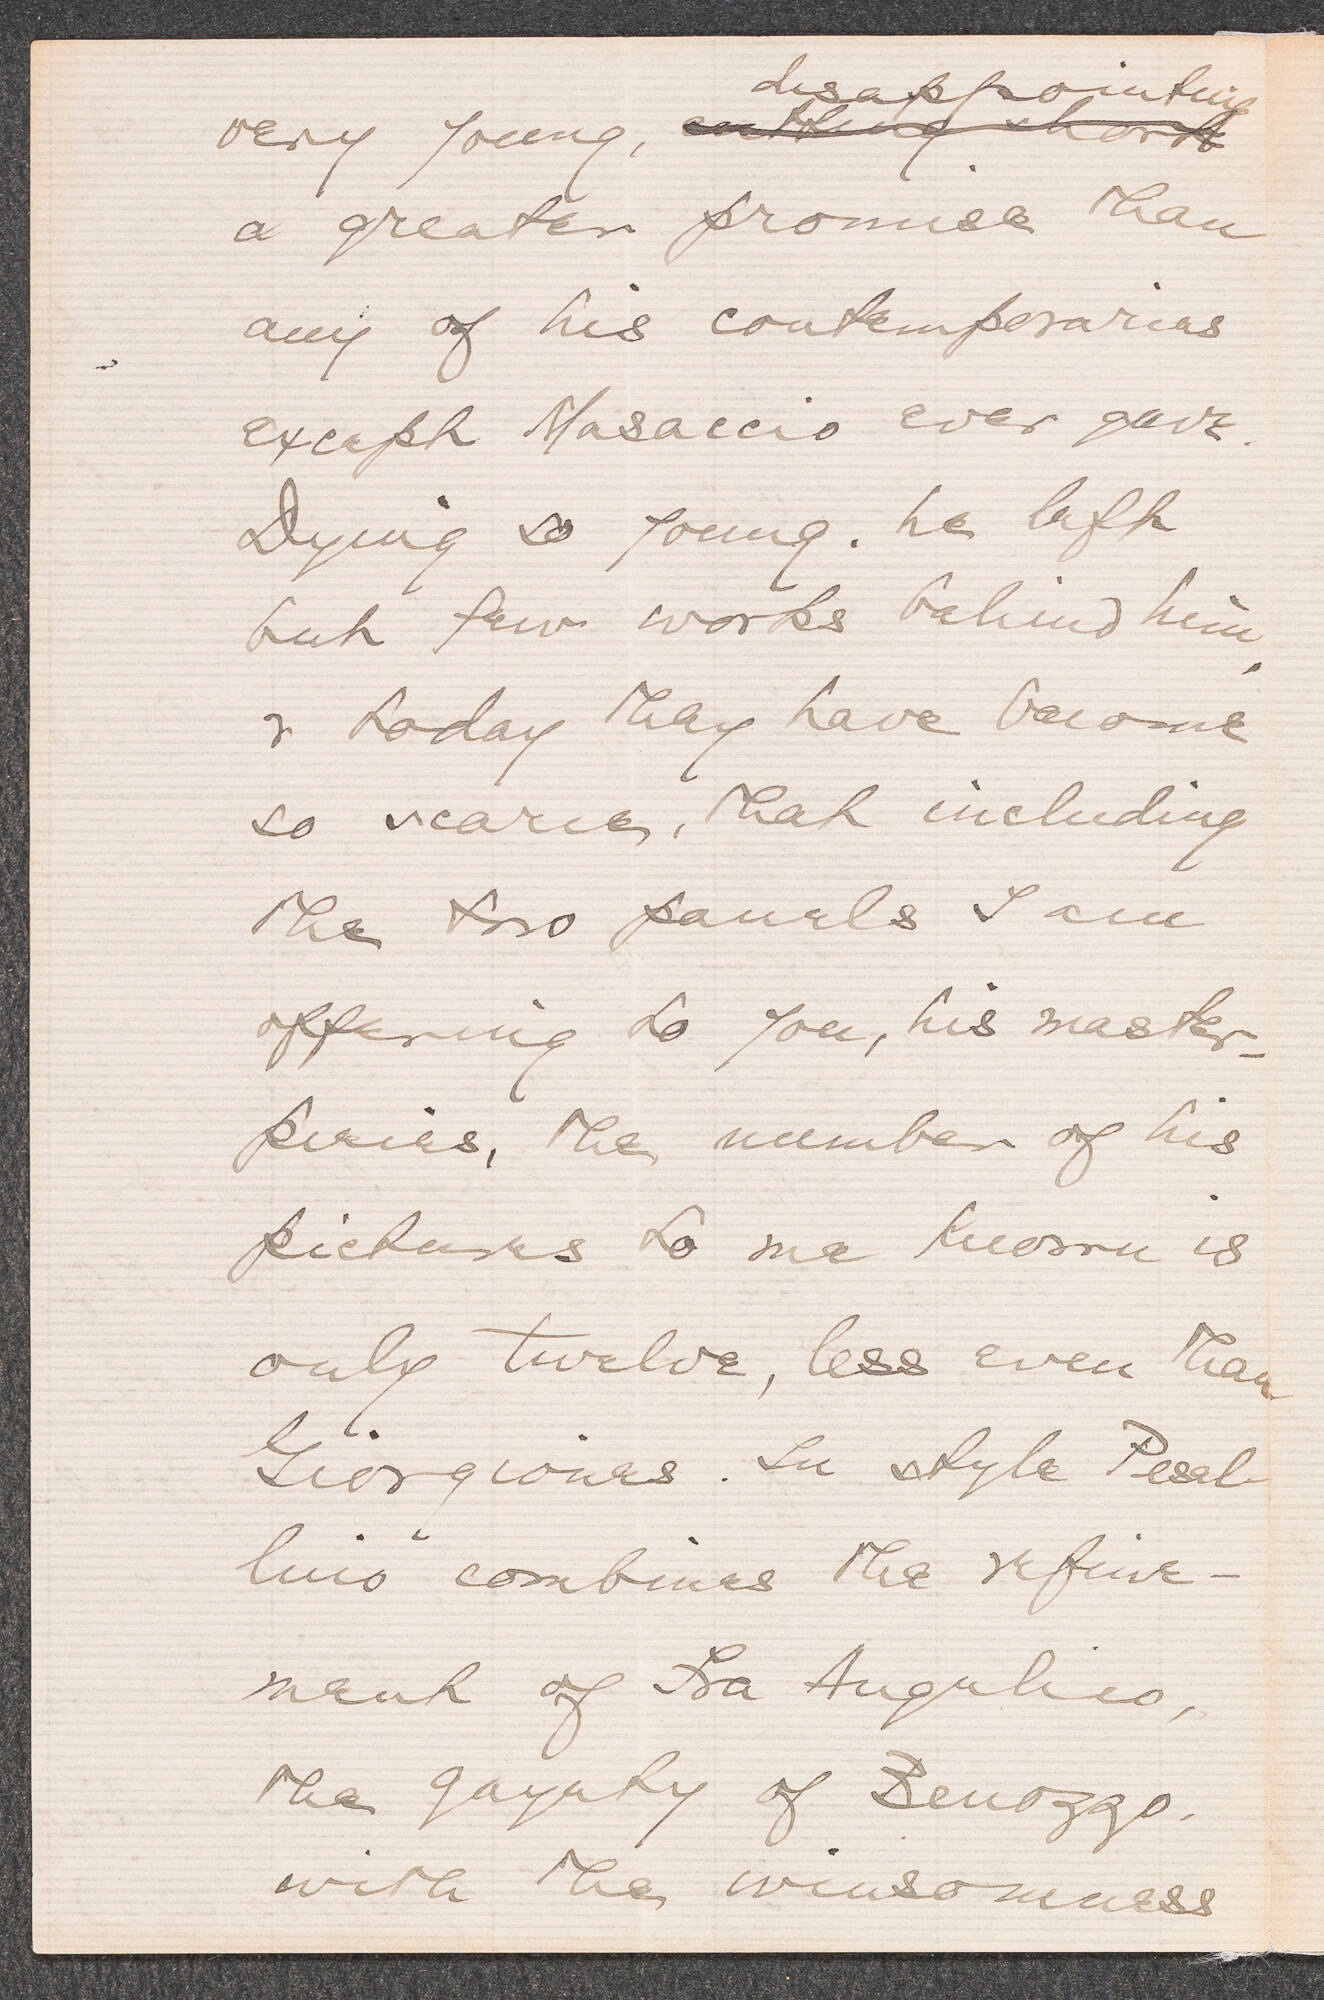 disappointing
very young, cutting short
a greater promise than
any of his contemporaries
except Masaccio ever gave.
Dying so young. he left
but few works behind him,
& today they have become
so scarce, that including
the two panels I am
offering to you, his master-
pieces, the number of his
pictures to me known is
only twelve, less even than
Giorgiones. In style Pesel-
lino combines the refine-
ment of Fra Angelico,
the gayety of Benozzo,
with the winsomness